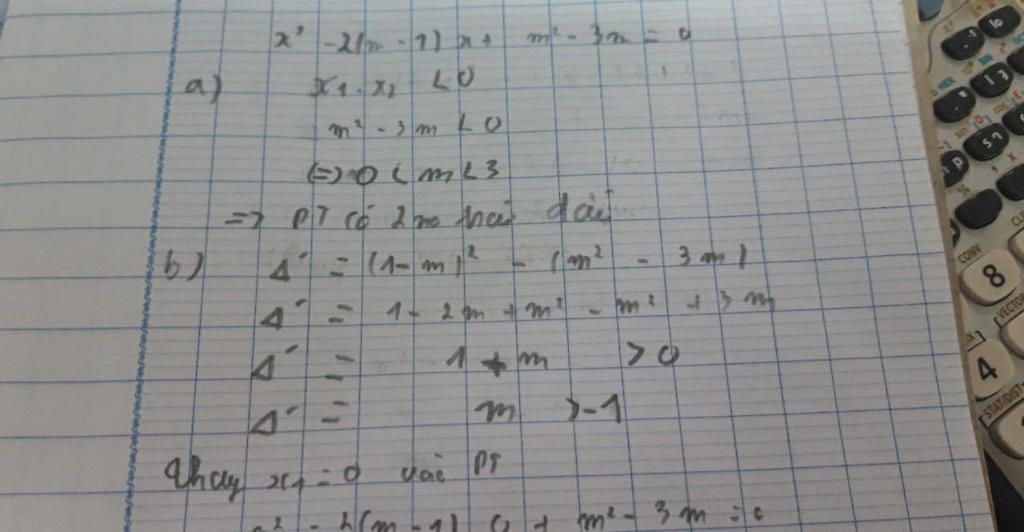 x² - 2(m - 1) x + m² - 3m = 0
a) x₁ . x₂ < 0
m² - 3m < 0
(=) 0 < m < 3
=> PT có 2 no trái dấu
b) Δ' = (1 - m)² - (m² - 3m)
Δ' = 1 - 2m + m² - m² + 3m
Δ' = 1 + m > 0
Δ' = m > -1
Thay x₁ = 0 vào PT
0² - 2(m - 1) 0 + m² - 3m = 0
CONV
8
4